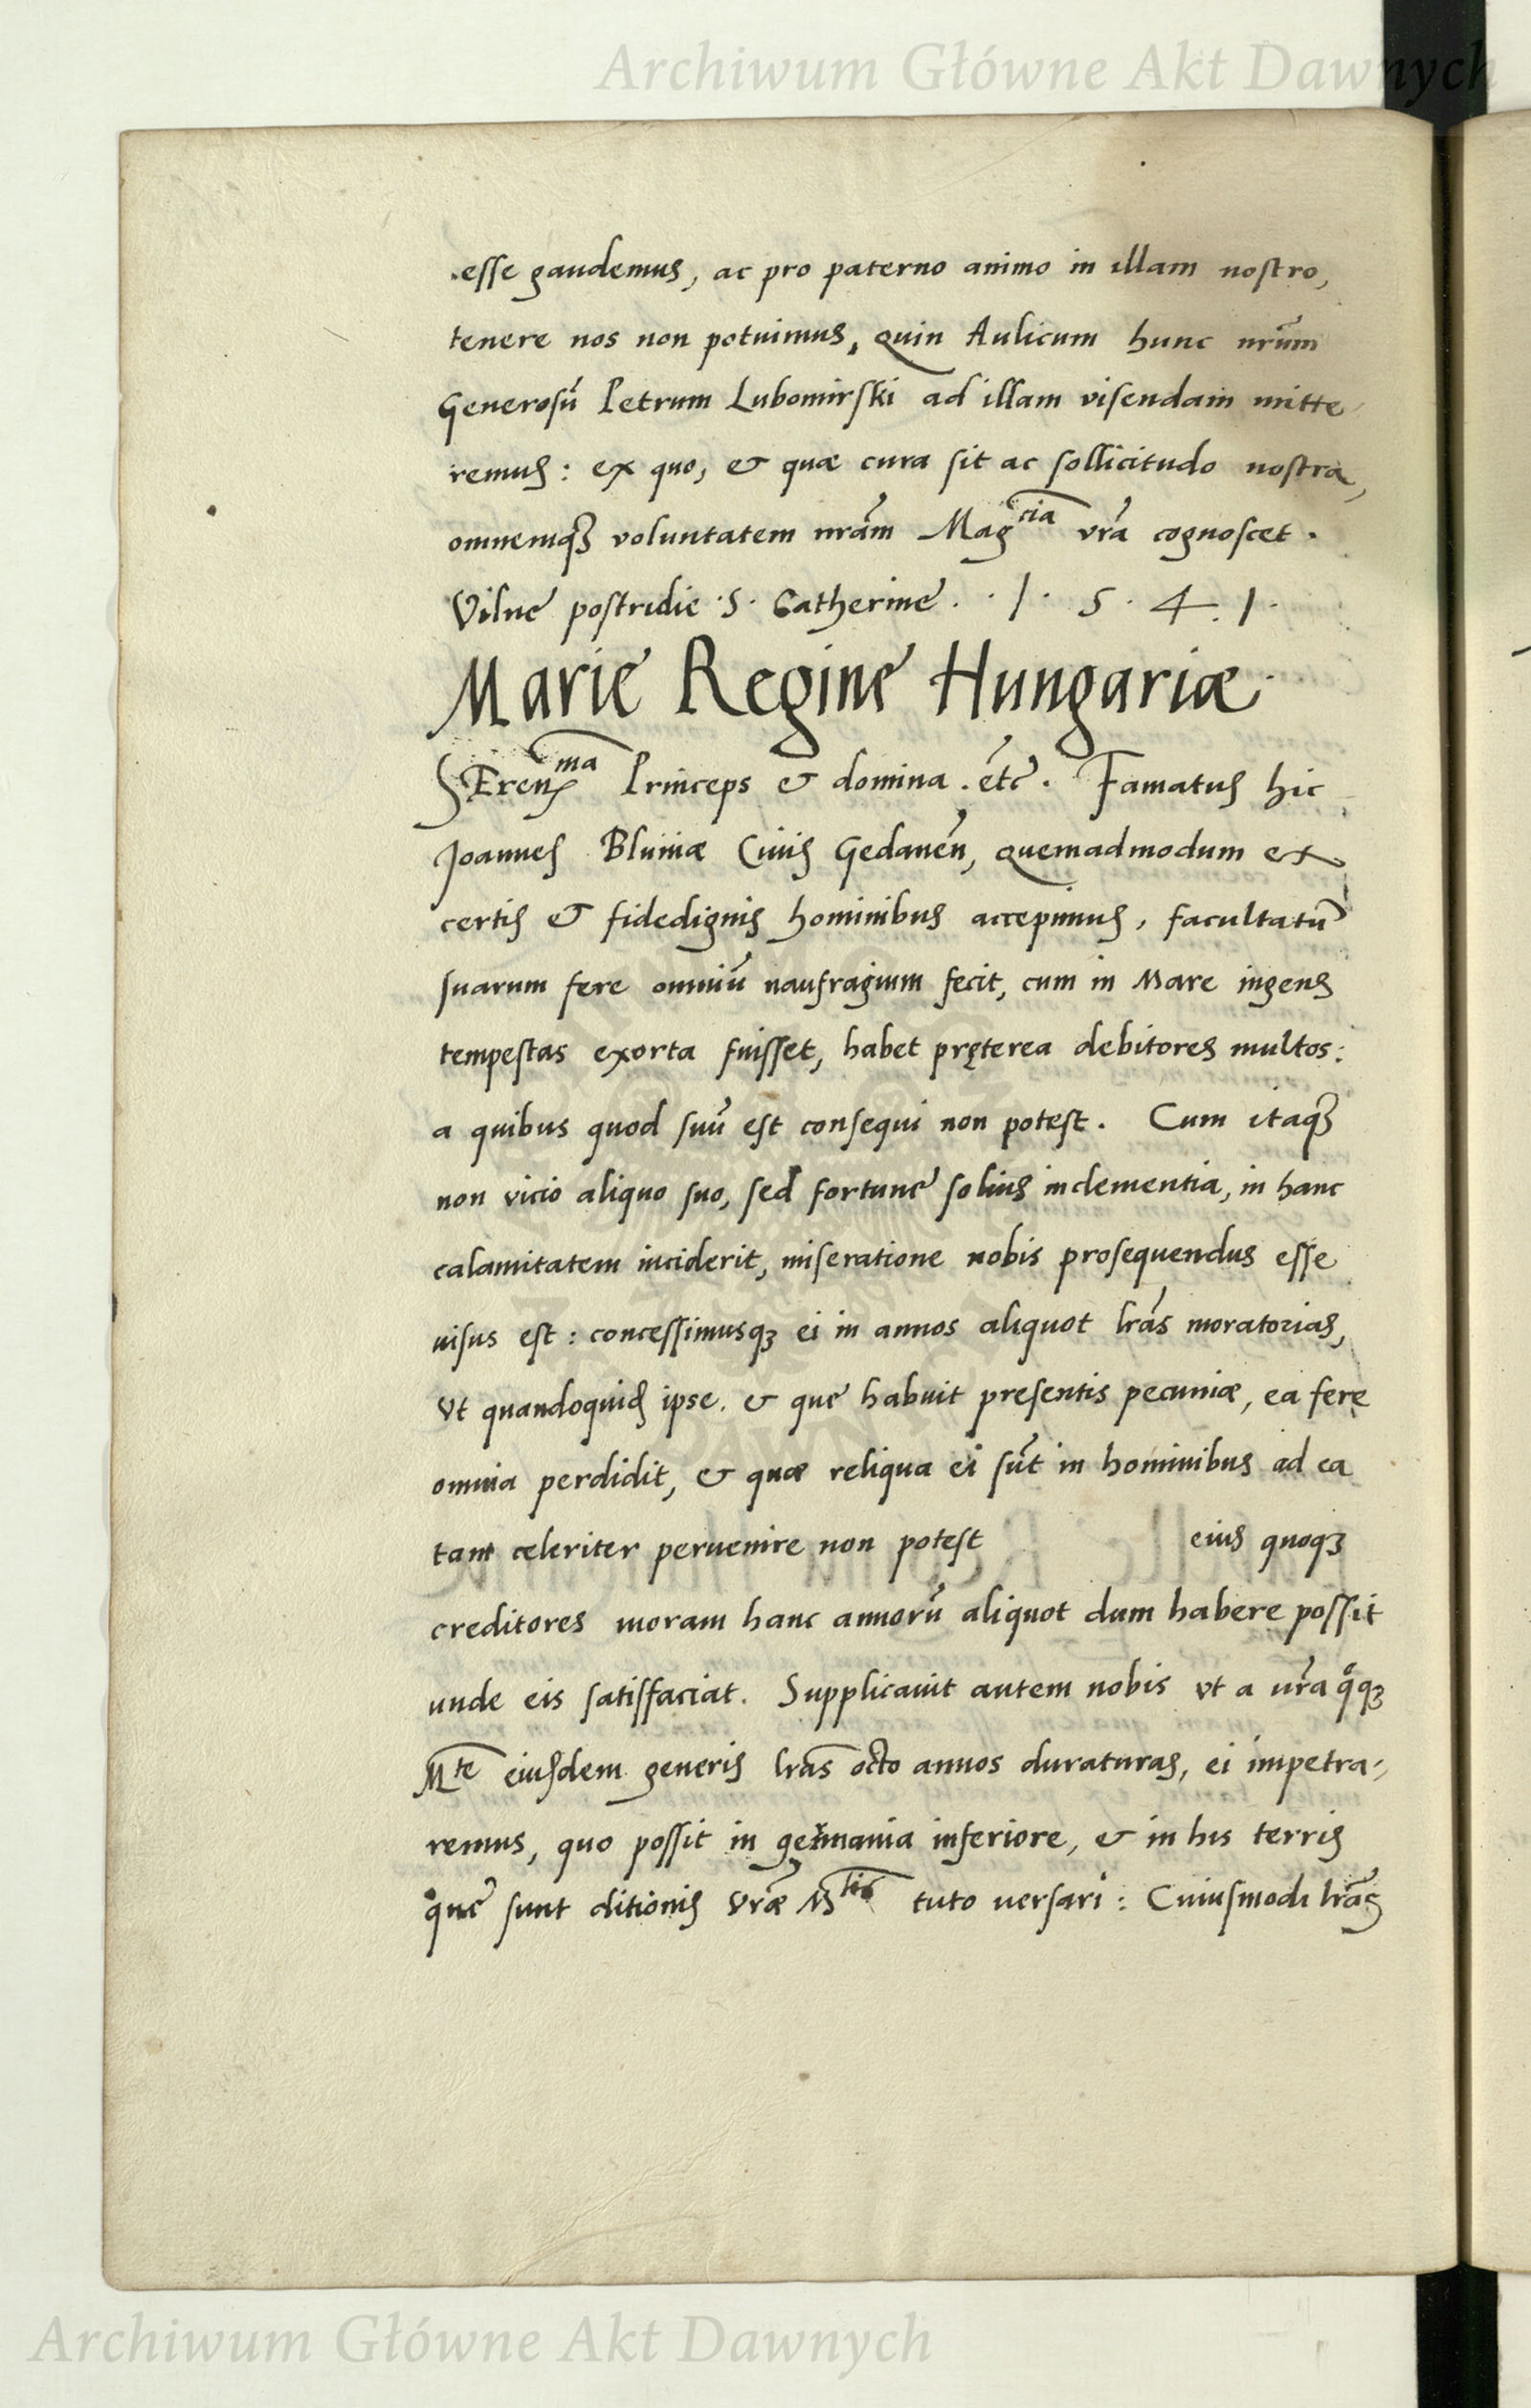 Archiwum Główne Akt Dawnych
esse gaudemus, ac pro paterno animo in illam nostro,
tenere nos non potuimus, quin Aulicum hunc nrm̃
Generosũ Petrum Lubomirski ad illam visendam mitte-
remus: ex quo, & quæ cura sit ac sollicitudo nostra,
omnemqʒ voluntatem nrãm Mag^cia vrã cognoscet.
Vilnę postridie .S. Catherinę. .1.5.4.1.
Marię Reginę Hungariæ
SEren^ma Princeps & domina. etc̃. Famatus hic
Joannes Blumæ Civis Gedaneñ, quemadmodum ex
certis & fidedignis hominibus accepimus, facultatũ
suarum fere omniũ naufragium fecit, cum in Mare ingens
tempestas exorta fuisset, habet pręterea debitores multos:
a quibus quod suũ est consequi non potest. Cum itaqʒ
non vicio aliquo suo, sed fortunę solius inclementia, in hanc
calamitatem inciderit, miseratione nobis prosequendus esse
visus est: concessimusqʒ ei in annos aliquot lrãs moratorias,
Vt quandoquid ipse. & quę habuit presentis pecuniæ, ea fere
omnia perdidit, & quæ reliqua ei sũt in hominibus ad ea
tam celeriter pervenire non potest eius quoqʒ
creditores moram hanc annorũ aliquot dum habere possit
unde eis satisfaciat. Supplicavit autem nobis vt a vrã qͦqʒ
M^te eiusdem generis lrãs octo annos duraturas, ei impetra-
remus, quo possit in germania inferiore, & in his terris
quę sunt ditionis vræ̃ M^tis tuto versari: Cuiusmodi lrãs
Archiwum Główne Akt Dawnych